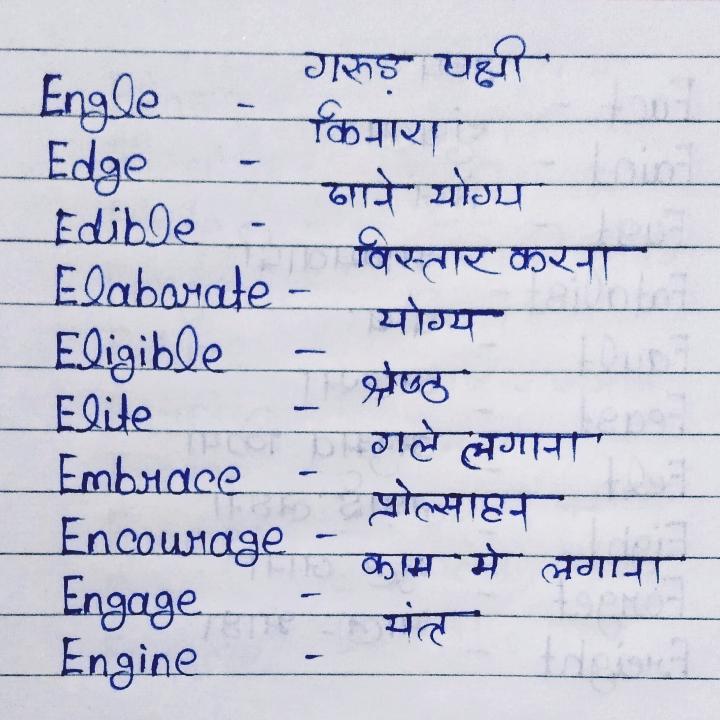 Engle - गरुड़ पक्षी
Edge - किनारा
Edible - खाने योग्य
Elaborate - विस्तार करना
Eligible - योग्य
Elite - श्रेष्ठ
Embrace - गले लगाना
Encourage - प्रोत्साहन
Engage - काम मे लगाना
Engine - यंत्र